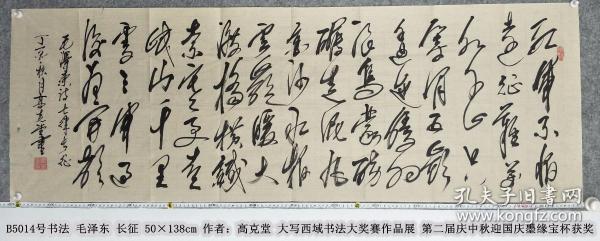 红军不怕
远征难万
水千山只
等闲五岭
逶迤腾细
浪乌蒙磅
礴走泥丸
金沙水拍
云崖暖大
渡桥横铁
索寒更喜
岷山千里
雪三军过
后尽开颜
毛泽东诗七律长征
丁亥秋月高克堂书
孔夫子旧书网
B5014号书法 毛泽东 长征 50×138cm 作者：高克堂 大写西域书法大奖赛作品展 第二届庆中秋迎国庆墨缘宝杯获奖